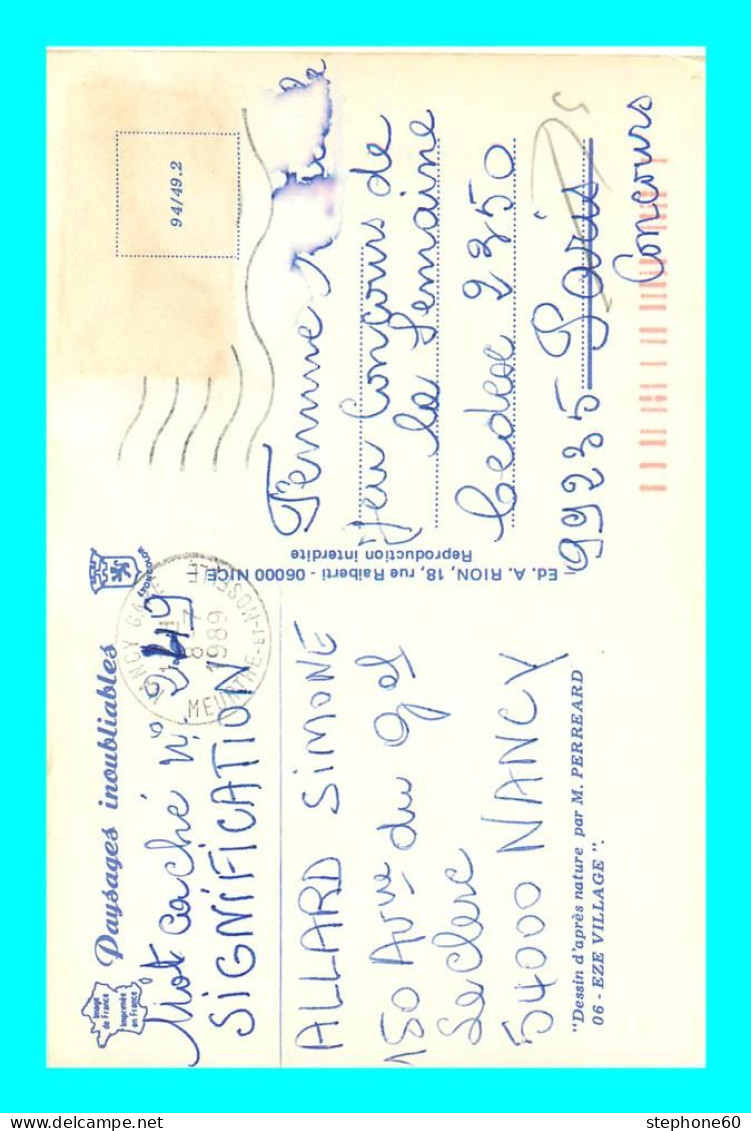 Image
de France
Imprimée
en France
Paysages inoubliables
LYONCOLOR
Mot caché n° 249
SIGNIFICATION
ALLARD SIMONE
150 Avue du Gal
Leclerc
54000 NANCY
"Dessin d'après nature par M. PERREARD
06 - EZE VILLAGE".
NANCY GARE
1989
MEURTHE-ET-MOSELLE
Ed. A. RION, 18, rue Raiberti - 06000 NICE
Reproduction interdite
94/49.2
Femme
Jeu Concours de
la Semaine
Cedex 2350
99235 Paris
Concours
stephone60